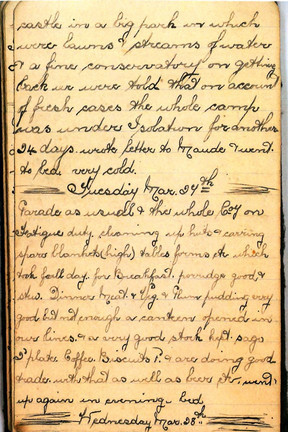 castle in a big park in which
were lawns & streams of water
& a fine conservatory on getting
back we were told that on account
of fresh cases the whole camp
was under Isolation for another
24 days. wrote letter to Maude & went
to bed very cold.
Tuesday Mar. 27th
Parade as usuall & the whole Coy on
fatigue duty cleaning up huts & carring
spare blankets (high) tables forms etc which
took foll day. for Breakfast. porridge good &
stew. Dinner Meat & Veg & Plum pudding very
good but not enough a canteen opened in
our lines & a very good stock kept. sags
plate Coffee. Biscuits & are doing good
trade with that as well as beer etc. went
up again in evening. bed
Wednesday Mar. 28th